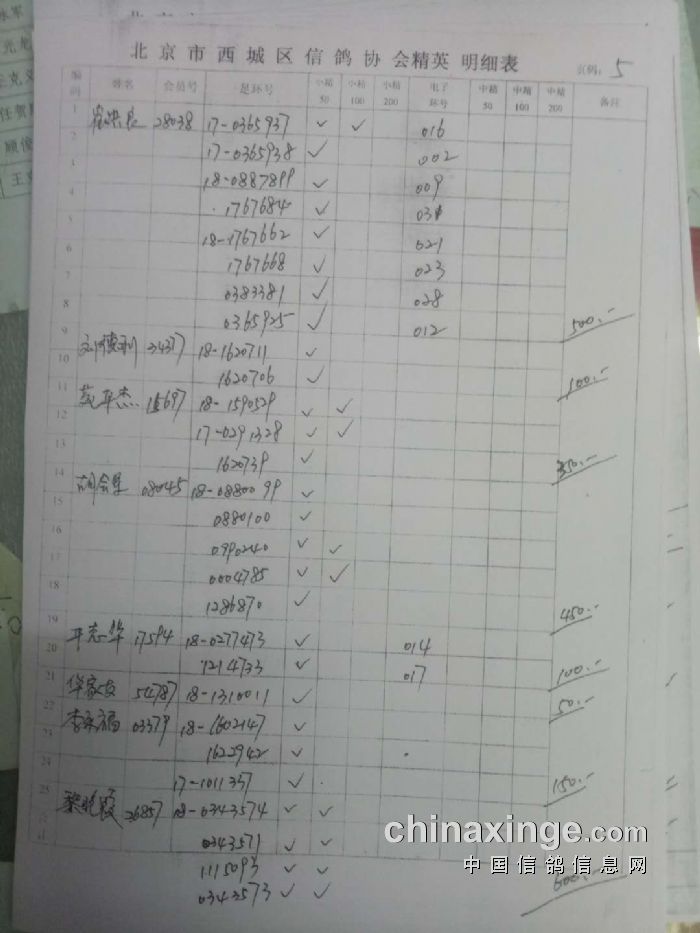 北京市西城区信鸽协会精英明细表
页码: 5
编码 姓名 会员号 足环号 小精50 小精100 小精200 电子环号 中精50 中精100 中精200 备注
1 28038 17-0365937 ✓ ✓ 016
2 17-0365938 ✓ 002
3 18-0887899 ✓ 009
4 1767684 ✓
5 18-1767662 ✓ 021
6 1767668 ✓ 023
7 0383381 ✓ 028
8 0365925 ✓ 012 500.-
9 18-1620711 ✓
10 1620706 ✓ 100.-
11 范平杰 18-1590529 ✓ ✓
12 17-0291328 ✓ ✓
13 1620739 ✓ 350.-
14 胡会星 08045 18-0880099 ✓
15 0880100 ✓
16 0990240 ✓ ✓
17 0004785 ✓ ✓
18 1286870 ✓ 450.-
19 17594 18-0277473 ✓ 014
20 1214733 ✓ 017 100.-
21 54787 18-1310011 ✓ 50.-
22 李永福 03379 18-1602147 ✓
23 1622942 ✓
24 17-1011357 ✓ 150.-
25 黎艳霞 26857 18-0343574 ✓ ✓
合计 0343571 ✓ ✓
1115093 ✓ ✓
0343573 ✓ ✓ 600.-
chinaxinge.com
中国信鸽信息网